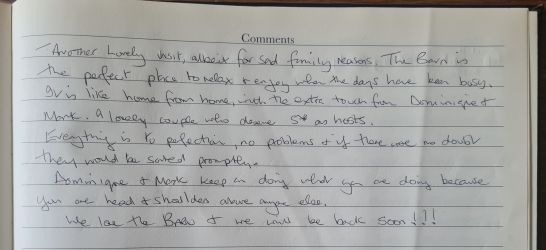 Comments
Another Lovely visit, albeit for sad family reasons. The Barn is
the perfect place to relax & enjoy when the days have been busy.
It is like home from home, with the extra touch from Dominique &
Mark. A lovely couple who deserve 5* as hosts.
Everything is to perfection, no problems & if there were no doubt
they would be sorted promptly.
Dominique & Mark keep on doing what you are doing because
you are head & shoulders above anyone else.
We love the Barn & we will be back soon!!!